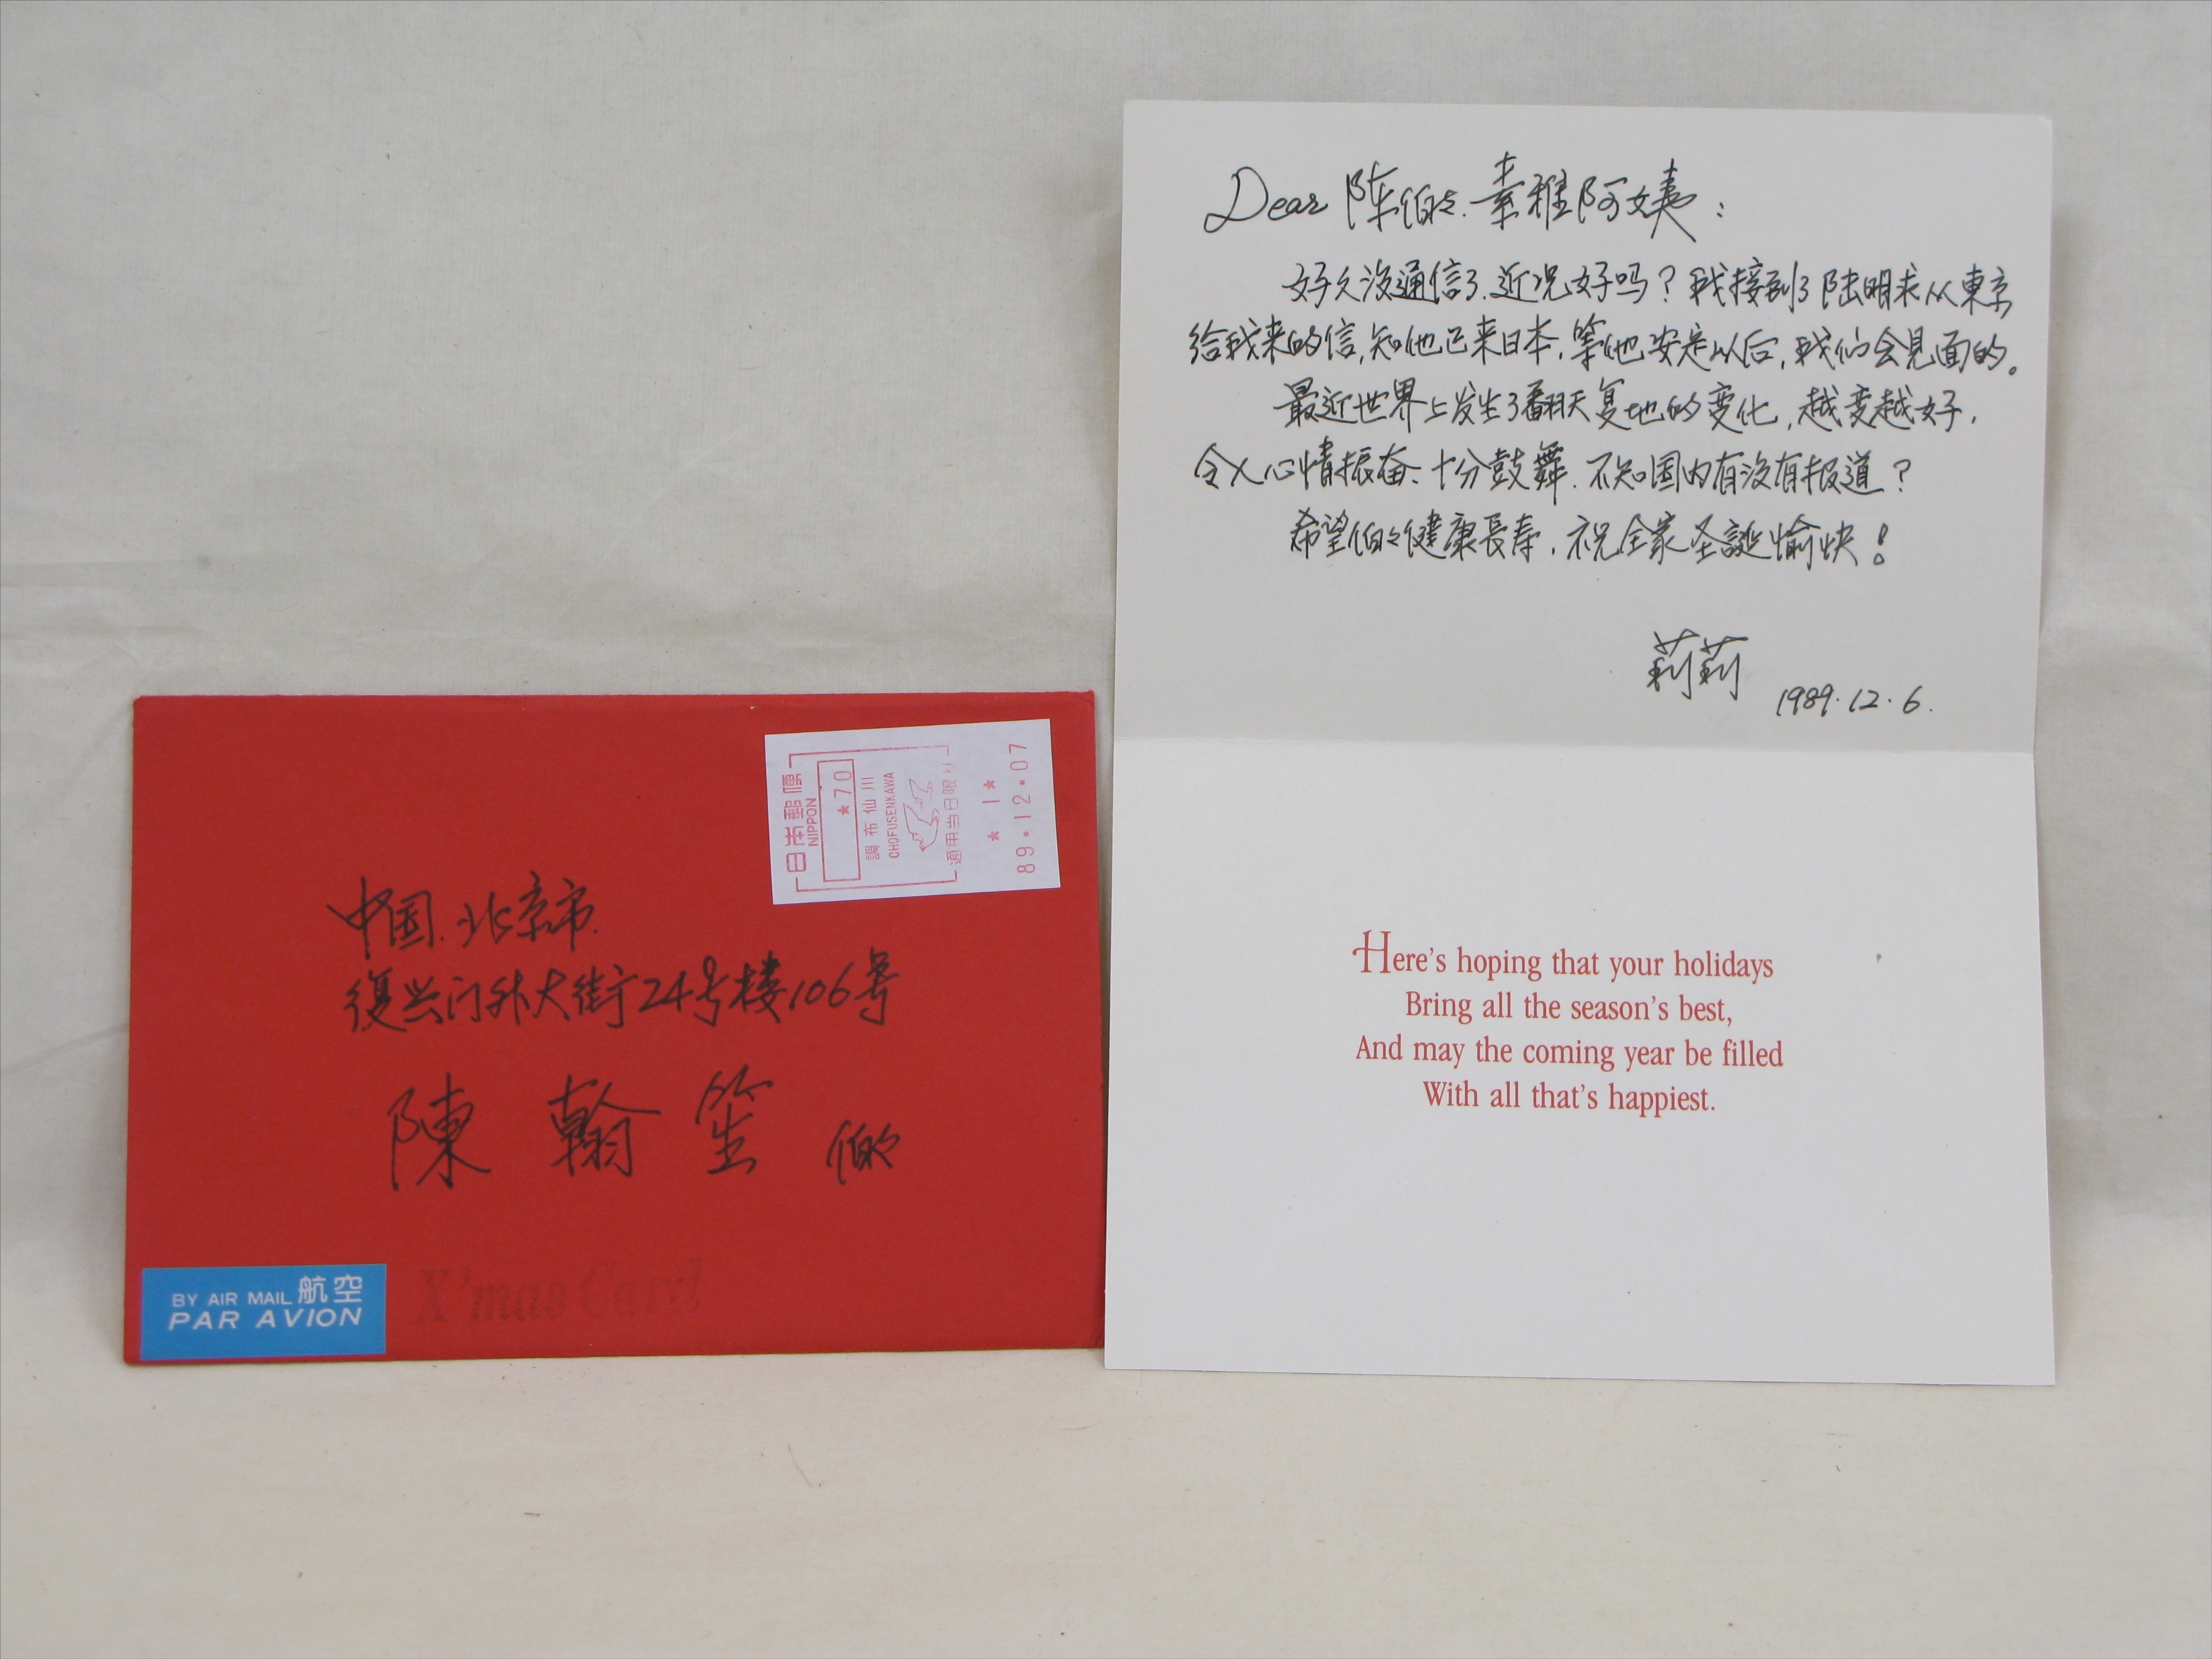 Dear 陈伯々.素雅阿姨：
好久没通信了.近况好吗？我接到了陆明求从東京
给我来的信,知他已来日本,等他安定以后,我们会见面的。
最近世界上发生了翻天复地的变化,越变越好,
令人心情振奋、十分鼓舞.不知国内有没有报道？
希望伯々健康長寿,祝全家圣誕愉快！
莉莉
1989.12.6.
Here's hoping that your holidays
Bring all the season's best,
And may the coming year be filled
With all that's happiest.
日本郵便
NIPPON
★70
調布仙川
CHOFUSENKAWA
適用当日限り
★ 1 ★
89.12.07
中国.北京市.
復兴门外大街24号楼106号
陳翰笙 伯々
BY AIR MAIL 航空
PAR AVION
X'mas Card